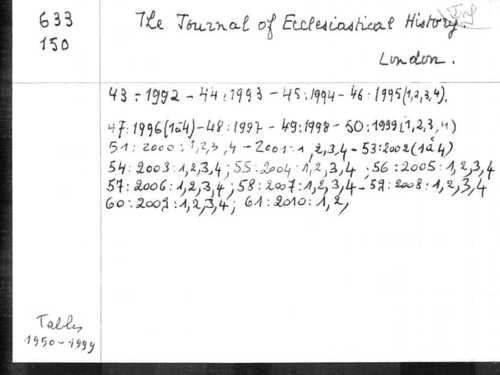 633
150
The Journal of Ecclesiastical History.
London.
43:1992 - 44:1993 - 45:1994 - 46:1995(1,2,3,4).
47:1996(1à4) - 48:1997 - 49:1998 - 50:1999(1,2,3,4)
51:2000:1,2,3,4 - 2001:1,2,3,4 - 53:2002(1à4)
54:2003:1,2,3,4; 55:2004:1,2,3,4; 56:2005:1,2,3,4
57:2006:1,2,3,4; 58:2007:1,2,3,4 - 59:2008:1,2,3,4
60:2009:1,2,3,4; 61:2010:1,2,
Tables
1950-1999